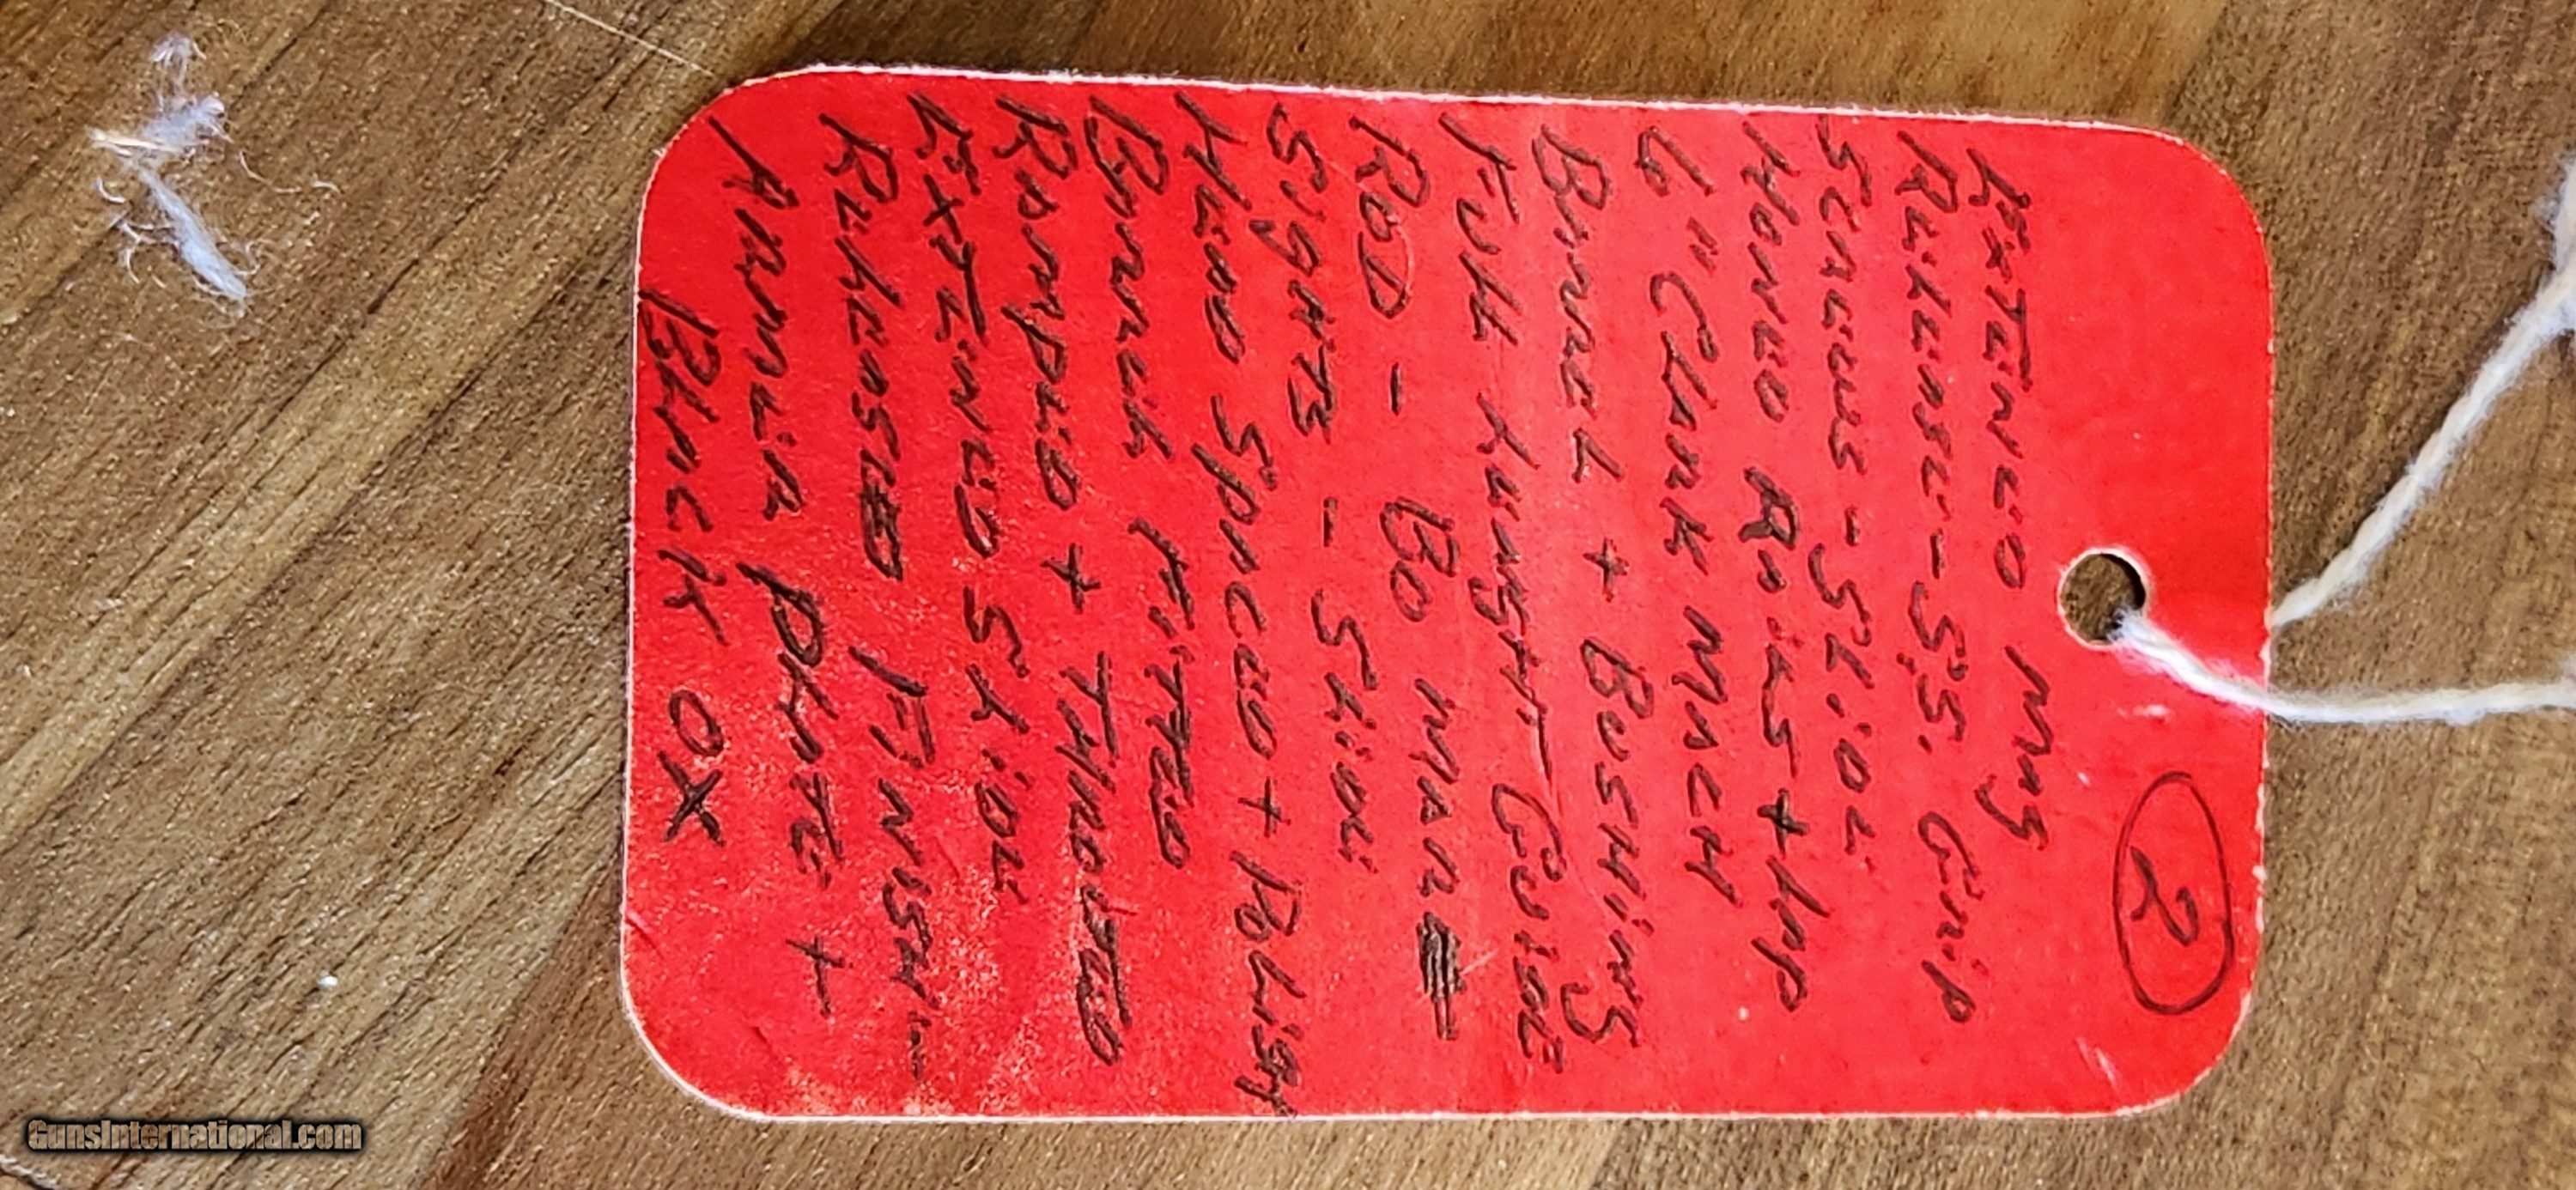 2
EXTENED MAG
RELEASE - S.S. GRIP
SCREWS - SLIDE
HONED RAILS + LAP
6" CLARK MACH
BARREL + BUSHING
FULL LENGTH GUIDE
ROD - BO MAR
SIGHTS - SLIDE
HEAD SPACED + POLISH
BARREL FITTED
RAMPED + THROTED
EXTENED SLIDE
RELEASED FINISH
ARMER PLATE +
BLACK OX
GunsInternational.com